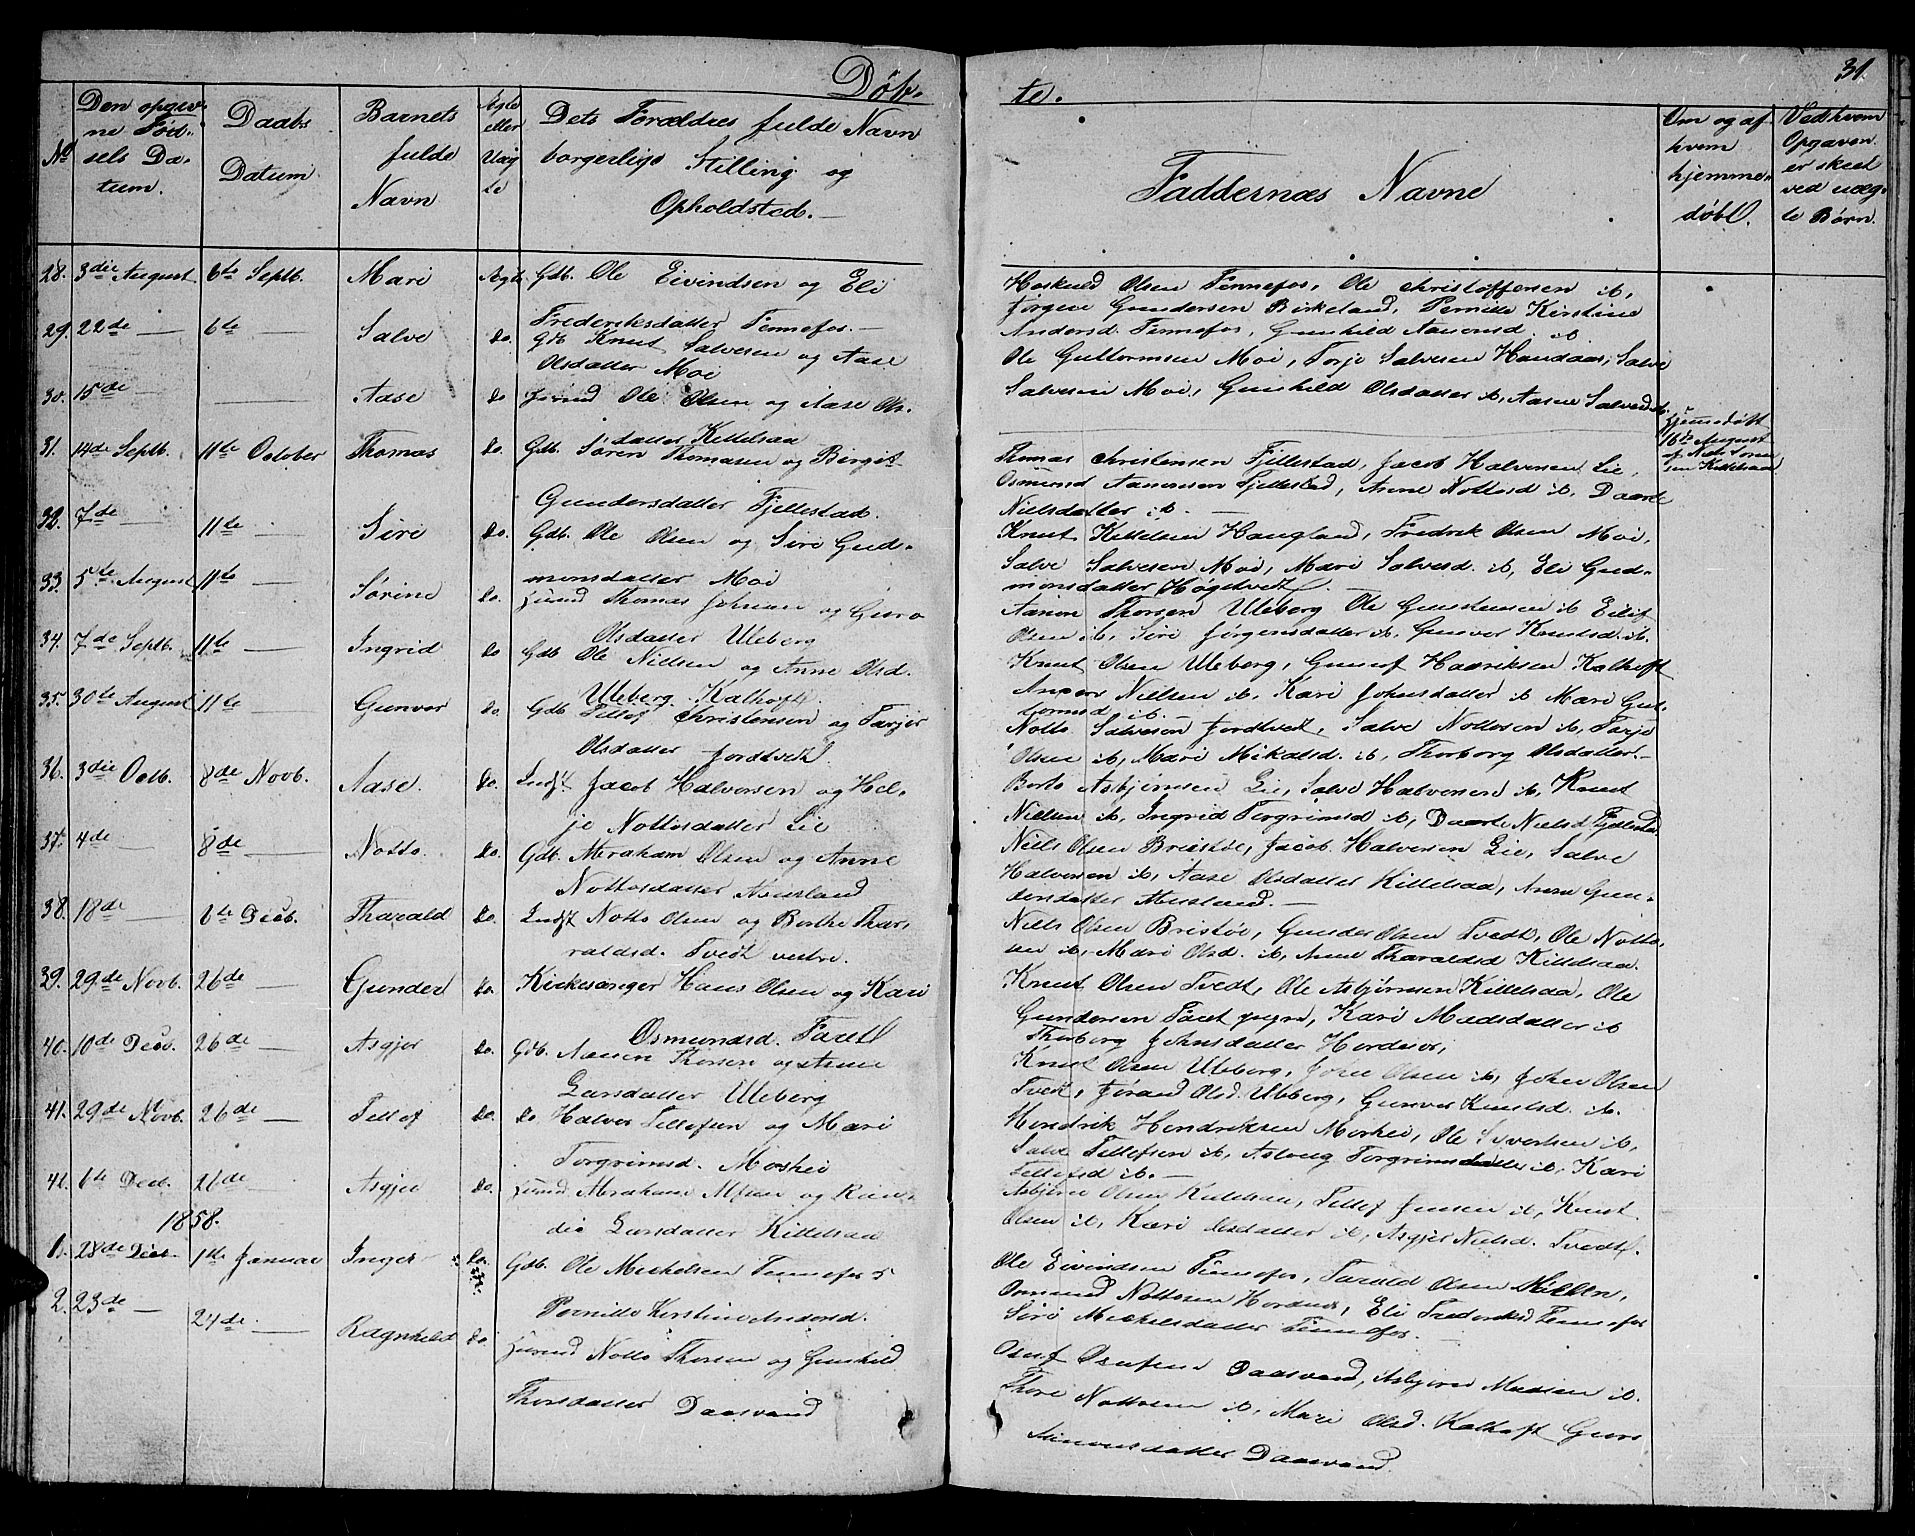 Døb-
te.
31.
No
Den opgiv-
ne Fød-
sels Da-
tum.
Daabs
Datum
Barnets
fulde
Navn
Ægte
eller
Uæg
te
Dets Forældres fulde Navn
borgerlige Stilling og
Opholdsted.
Faddernes Navne
Om og af
hvem
hjemme-
døbt.
Ved hvem
Opgaven
er skeet
ved uæg-
te Børn.
28. 3die August 6te Septb. Mari Ægte Gdb. Ole Eivindsen og Eli
Frederiksdatter Tennefos.
Hoskuld Olsen Tennefos, Ole Christoffersen ib,
Jørgen Gundersen Birkeland, Pernille Kirstine
Andersd. Tennefos, Gunhild Aanonsd. ib
29. 22de 6te Salve do. Gdb Knut Salvesen og Aase
Olsdatter Moi
Ole Guttormsen Moi, Torje Salvesen Haudaas, Salve
Salvesen Moi, Gunhild Olsdatter ib, Aasne Salvesd ib.
30. 15de Aase do Ole Olsen og Aase Ols-
datter Kittelsaa
hjemmedøbt
16de August
af Niels
sen Kittelsaa
31. 14de Septb. 11te October Thomas do. Gdb. Søren Thomasen og Birgit
Gundersdatter Fjellestad.
Thomas Christensen Fjellestad, Jacob Halvorsen Lie,
Osmund Aanensen Fjellestad, Anne Nottosd ib, Daarte
Nielsdatter ib.
32. 7de 11te Siri do. Gdb. Ole Olsen og Siri Gud-
monsdatter Moi
Knut Kittelsen Haugland, Fredrik Olsen Moi,
Salve Salvesen Moi, Mari Salvesd. ib, Eli Gud-
monsdatter Høgetvedt.
33. 5te August 11te Sørine do. Thomas Johnsen og Guro
Olsdatter Uleberg
Aanon Thorsen Uleberg Ole Gunstensen ib Eilif
Olsen ib, Siri Jørgensdatter ib, Gunvor Knutsd. ib.
34. 7de Septb. 11te Ingrid do Gdb Ole Nielsen og Anne Olsd.
Uleberg. Kalhoft.
Knut Olsen Uleberg, Gunuf Henriksen Kalhoft
Nielsen ib. Kari Johnsdatter ib Mari Gut-
tormsd ib.
35. 30te August 11te Gunvor do. Gdb Tellef Christensen og Torjer
Olsdatter Jordtvedt.
Notto Salvesen Jordtvedt, Salve Nottosen ib, Torje
Olsen ib, Mari Mikalsd. ib, Thorborg Olsdatter.
36. 3die Octb. 8de Novb. Aase. do. Indst Jacob Halvorsen og Hel-
je Nottosdatter Lie
Asbjørnsen Lie, Salve Halvorsen ib, Knut
Nielsen ib, Ingrid Torgrimsd ib, Daarte Nielsd Fjellestad
37. 4de 8de Notto. do. Gdb. Abraham Olsen og Anne
Nottosdatter Musland
Niels Olsen Bristøl, Jacob Halvorsen Lie, Salve
Halvorsen ib, Aase Olsdatter Kittelsaa, Anne Gun-
dersdatter Musland.
38. 18de 6te Decb. Tharald do. Indst Notto Olsen og Berthe Tha-
raldsd. Tvedt vestre.
Niels Olsen Bristøl, Gunder Olsen Tvedt, Ole Notto-
sen ib, Mari Olsd. ib, Anne Tharaldsd Kittelsaa.
39. 29de Novb. 26de Gunder do. Kirkesanger Hans Olsen og Kari
Osmundsd. Faret
Knut Olsen Tvedt, Ole Asbjørnsen Kittelsaa, Ole
Gundersen Faret yngre, Kari Madsdatter ib
Thorborg Johnsdatter Hordnes,
40. 10de Decb. 26de Asgjer do. Gdb. Aanen Thorsen og Anne
Larsdatter Uleberg
Knut Olsen Uleberg, John Olsen ib, John Olsen
Tvedt, Jørand Olsd. Uleberg, Gunvor Knutsd. ib.
41. 29de Novb. 26de Tellef do. do Halvor Tellefsen og Mari
Torgrimsd. Moshei
Hendrik Hendriksen Moshei, Ole Sivertsen ib,
Salve Tellefsen ib, Aslaug Torgrimsdatter ib, Kari
Tellefsd ib.
42. 6te Decb. 26de Asgjer do. Abraham Olsen og Ran-
di Larsdatter Kittelsaa
Asbjørn Olsen Kittelsaa, Tellef Jensen ib, Knut
Olsen ib, Kari Olsdatter ib, Asgjer Nielsd. Tvedt.
1858.
1. 28de Decb. 1ste Januar Inger do. Gdb. Ole Mickelsen Tennefos
Pernille Kirstine Andersd.
Ole Eivindsen Tennefos, Tarald Olsen
Osmund Nottosen Hordnes, Eli Frederiksd Tennefos
Siri Mickelsdatter Tennefos.
2. 23de 24de Ragnhild do. Notto Thorsen og Gunhild
Thorsdatter Daasvand
Osuf Osufsen Daasvand, Asbjørn Madsen ib.
Thore Nottosen ib, Mari Olsd. Kalhoft Guro
Simonsdatter Daasvand.